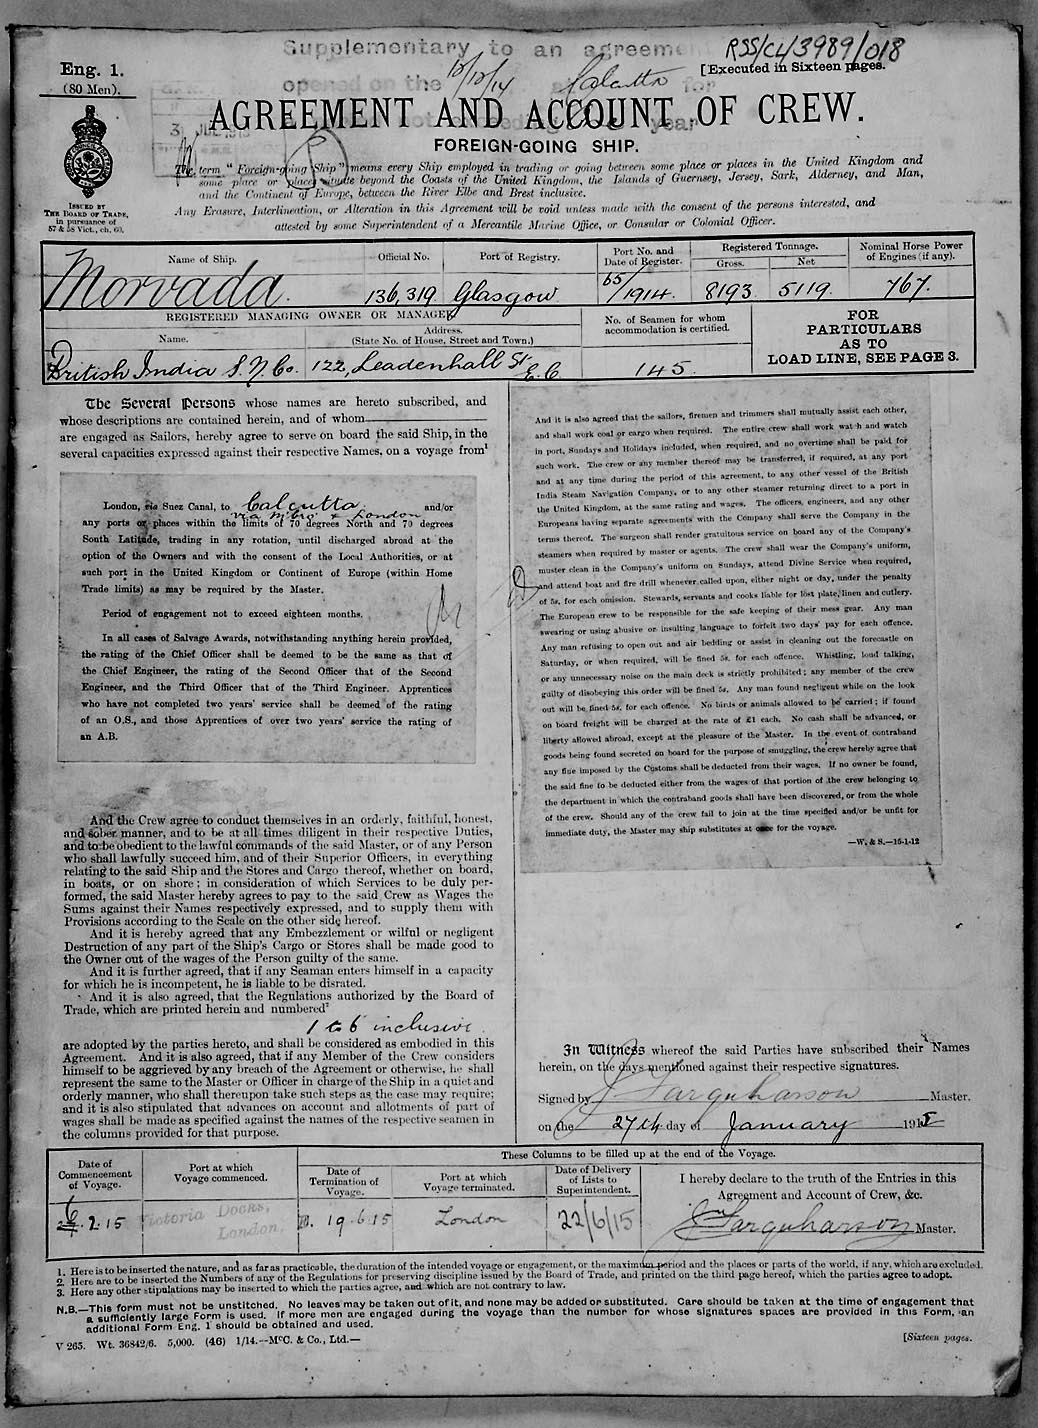 Supplementary to an agreement
opened on the 12/12/14 at Calcutta for
RSS/CL/3989/018
Eng. 1.
(80 Men).
[Executed in Sixteen pages.
AGREEMENT AND ACCOUNT OF CREW.
FOREIGN-GOING SHIP.
The term "Foreign-going Ship" means every Ship employed in trading or going between some place or places in the United Kingdom and
some place or places situate beyond the Coasts of the United Kingdom, the Islands of Guernsey, Jersey, Sark, Alderney, and Man,
and the Continent of Europe, between the River Elbe and Brest inclusive.
Any Erasure, Interlineation, or Alteration in this Agreement will be void unless made with the consent of the persons interested, and
attested by some Superintendent of a Mercantile Marine Office, or Consular or Colonial Officer.
ISSUED BY
THE BOARD OF TRADE,
in pursuance of
57 & 58 Vict., ch. 60.
Name of Ship. Official No. Port of Registry. Port No. and Date of Register. Registered Tonnage. Gross. Net Nominal Horse Power of Engines (if any).
Morvada. 136,319 Glasgow 65/1914. 8193 5119. 767.
REGISTERED MANAGING OWNER OR MANAGER
Name. Address. (State No. of House, Street and Town.) No. of Seamen for whom accommodation is certified.
British India S. N. Co. 122, Leadenhall St. E.C. 145.
FOR
PARTICULARS
AS TO
LOAD LINE, SEE PAGE 3.
The Several Persons whose names are hereto subscribed, and
whose descriptions are contained herein, and of whom
are engaged as Sailors, hereby agree to serve on board the said Ship, in the
several capacities expressed against their respective Names, on a voyage from¹
London, via Suez Canal, to Calcutta and/or
via M'bro & London
any ports or places within the limits of 70 degrees North and 70 degrees
South Latitude, trading in any rotation, until discharged abroad at the
option of the Owners and with the consent of the Local Authorities, or at
such port in the United Kingdom or Continent of Europe (within Home
Trade limits) as may be required by the Master.
Period of engagement not to exceed eighteen months.
In all cases of Salvage Awards, notwithstanding anything herein provided,
the rating of the Chief Officer shall be deemed to be the same as that of
the Chief Engineer, the rating of the Second Officer that of the Second
Engineer, and the Third Officer that of the Third Engineer. Apprentices
who have not completed two years' service shall be deemed of the rating
of an O.S., and those Apprentices of over two years' service the rating of
an A.B.
And the Crew agree to conduct themselves in an orderly, faithful, honest,
and sober manner, and to be at all times diligent in their respective Duties,
and to be obedient to the lawful commands of the said Master, or of any Person
who shall lawfully succeed him, and of their Superior Officers, in everything
relating to the said Ship and the Stores and Cargo thereof, whether on board,
in boats, or on shore; in consideration of which Services to be duly per-
formed, the said Master hereby agrees to pay to the said Crew as Wages the
Sums against their Names respectively expressed, and to supply them with
Provisions according to the Scale on the other side hereof.
And it is hereby agreed that any Embezzlement or wilful or negligent
Destruction of any part of the Ship's Cargo or Stores shall be made good to
the Owner out of the wages of the Person guilty of the same.
And it is further agreed, that if any Seaman enters himself in a capacity
for which he is incompetent, he is liable to be disrated.
And it is also agreed, that the Regulations authorized by the Board of
Trade, which are printed herein and numbered²
1 to 6 inclusive.
are adopted by the parties hereto, and shall be considered as embodied in this
Agreement. And it is also agreed, that if any Member of the Crew considers
himself to be aggrieved by any breach of the Agreement or otherwise, he shall
represent the same to the Master or Officer in charge of the Ship in a quiet and
orderly manner, who shall thereupon take such steps as the case may require;
and it is also stipulated that advances on account and allotments of part of
wages shall be made as specified against the names of the respective seamen in
the columns provided for that purpose.
And it is also agreed that the sailors, firemen and trimmers shall mutually assist each other,
and shall work coal or cargo when required. The entire crew shall work watch and watch
in port, Sundays and Holidays included, when required, and no overtime shall be paid for
such work. The crew or any member thereof may be transferred, if required, at any port
and at any time during the period of this agreement, to any other vessel of the British
India Steam Navigation Company, or to any other steamer returning direct to a port in
the United Kingdom, at the same rating and wages. The officers, engineers, and any other
Europeans having separate agreements with the Company shall serve the Company in the
terms thereof. The surgeon shall render gratuitous service on board any of the Company's
steamers when required by master or agents. The crew shall wear the Company's uniform,
muster clean in the Company's uniform on Sundays, attend Divine Service when required,
and attend boat and fire drill whenever called upon, either night or day, under the penalty
of 5s. for each omission. Stewards, servants and cooks liable for lost plate, linen and cutlery.
The European crew to be responsible for the safe keeping of their mess gear. Any man
swearing or using abusive or insulting language to forfeit two days' pay for each offence.
Any man refusing to open out and air bedding or assist in cleaning out the forecastle on
Saturday, or when required, will be fined 5s. for each offence. Whistling, loud talking,
or any unnecessary noise on the main deck is strictly prohibited; any member of the crew
guilty of disobeying this order will be fined 5s. Any man found negligent while on the look
out will be fined 5s. for each offence. No birds or animals allowed to be carried; if found
on board freight will be charged at the rate of £1 each. No cash shall be advanced, or
liberty allowed abroad, except at the pleasure of the Master. In the event of contraband
goods being found secreted on board for the purpose of smuggling, the crew hereby agree that
any fine imposed by the Customs shall be deducted from their wages. If no owner be found,
the said fine to be deducted either from the wages of that portion of the crew belonging to
the department in which the contraband goods shall have been discovered, or from the whole
of the crew. Should any of the crew fail to join at the time specified and/or be unfit for
immediate duty, the Master may ship substitutes at once for the voyage.
—W. & S.—15-1-12
In Witness whereof the said Parties have subscribed their Names
herein, on the days mentioned against their respective signatures.
Signed by J Farquharson Master.
on the 27th day of January 1915
These Columns to be filled up at the end of the Voyage.
Date of Commencement of Voyage. Port at which Voyage commenced. Date of Termination of Voyage. Port at which Voyage terminated. Date of Delivery of Lists to Superintendent.
I hereby declare to the truth of the Entries in this
Agreement and Account of Crew, &c.
6.2.15 Victoria Docks, London. 19.6.15 London 22/6/15 J Farquharson Master.
1. Here is to be inserted the nature, and as far as practicable, the duration of the intended voyage or engagement, or the maximum period and the places or parts of the world, if any, which are excluded.
2. Here are to be inserted the Numbers of any of the Regulations for preserving discipline issued by the Board of Trade, and printed on the third page hereof, which the parties agree to adopt.
3. Here any other stipulations may be inserted to which the parties agree, and which are not contrary to law.
N.B.—This form must not be unstitched. No leaves may be taken out of it, and none may be added or substituted. Care should be taken at the time of engagement that
a sufficiently large Form is used. If more men are engaged during the voyage than the number for whose signatures spaces are provided in this Form, an
additional Form Eng. 1 should be obtained and used.
V 265. Wt. 36842/6. 5,000. (46) 1/14.—McC. & Co., Ltd.—
[Sixteen pages.